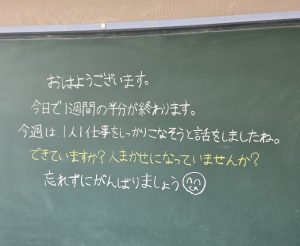 おはようございます。
今日で1週間の半分が終わります。
今週は、1人1仕事をしっかりこなそうと話をしましたね。
できていますか?人まかせになっていませんか?
忘れずにがんばりましょう